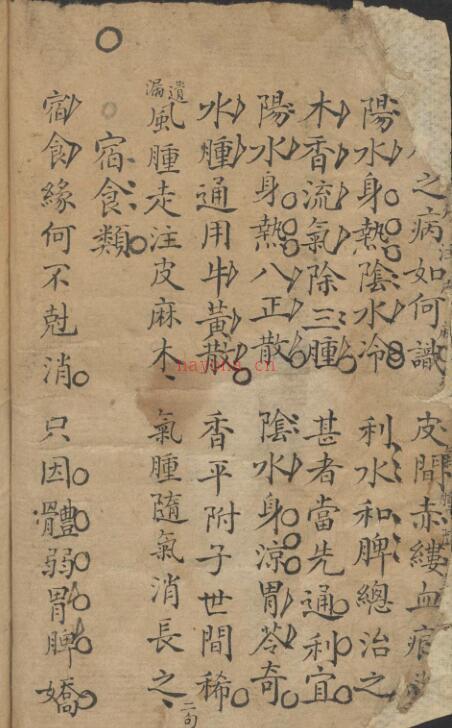 之病如何識 皮間赤縷血痕
陽水身熱陰水冷 利水和脾總治之
木香流氣除三腫 甚者當先通利宜
陽水身熱八正散 陰水身涼胃苓奇
水腫通用牛黃散 香平附子世間稀
遺漏 風腫走注皮麻木 氣腫隨氣消長之 二句
宿食類
宿食緣何不尅消 只因體弱胃脾嬌
nayona.cn